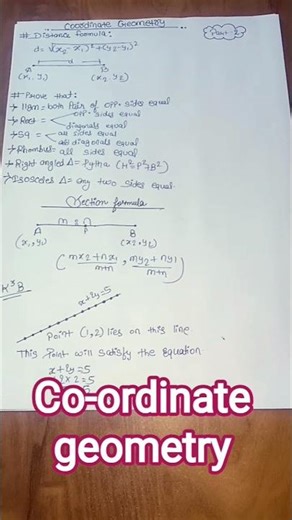 Coordinate Geometry
Part-1
# Distance formula:
d = √(x₂-x₁)²+(y₂-y₁)²
d
A B
(x₁, y₁) (x₂, y₂)
# Prove that:
→ 11gm = both Pair of opp. sides equal
→ Rect = opp. sides equal
diagonals equal
→ SQ = all sides equal
all diagonals equal
→ Rhombus = all sides equal
→ Right angled Δ = Pytha (H²=P²+B²)
→ Isosceles Δ = any two sides equal
Section formula
m : n
A P B
(x₁, y₁) (x₂, y₂)
(mx₂+nx₁/m+n, my₂+ny₁/m+n)
x+2y=5
Point (1,2) lies on this line
This Point will satisfy the Equation
x+2y=5
Co-ordinate
geometry